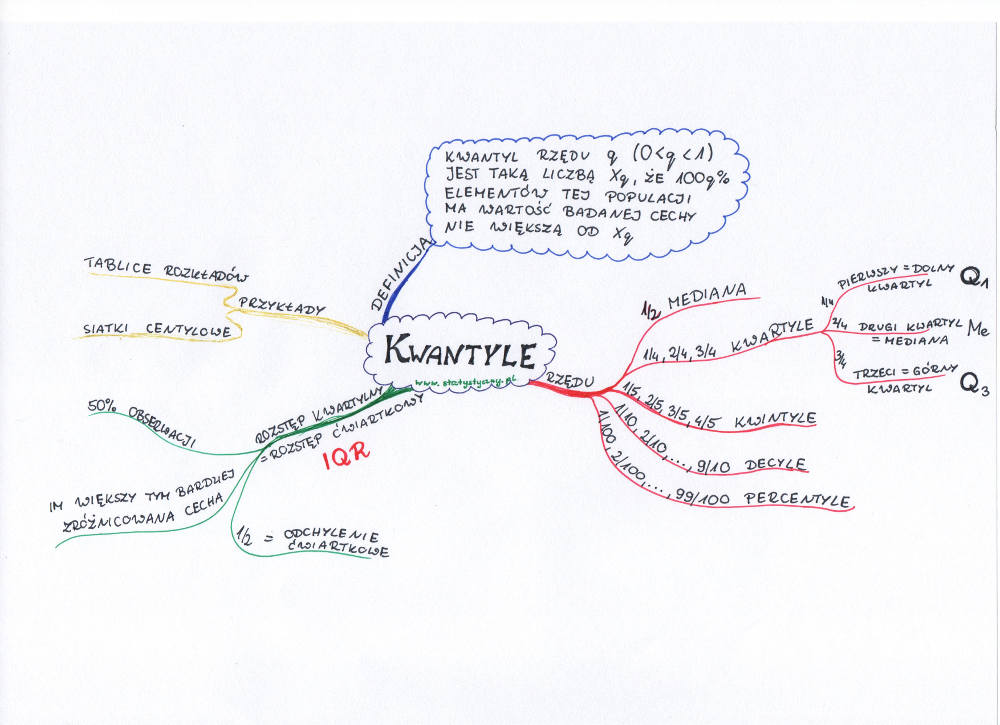 KWANTYL RZĘDU q (0<q<1)
JEST TAKĄ LICZBĄ Xq, ŻE 100q%
ELEMENTÓW TEJ POPULACJI
MA WARTOŚĆ BADANEJ CECHY
NIE WIĘKSZĄ OD Xq
DEFINICJA
KWANTYLE
www.statystyczny.pl
PRZYKŁADY
TABLICE ROZKŁADÓW
SIATKI CENTYLOWE
RZĘDU
1/2 MEDIANA
1/4, 2/4, 3/4 KWARTYLE
1/4 PIERWSZY = DOLNY
KWARTYL
Q1
2/4 DRUGI KWARTYL
= MEDIANA
Me
3/4
TRZECI = GÓRNY
KWARTYL
Q3
1/5, 2/5, 3/5, 4/5 KWINTYLE
1/10, 2/10, ..., 9/10 DECYLE
1/100, 2/100, ..., 99/100 PERCENTYLE
ROZSTĘP KWARTYLNY
= ROZSTĘP ĆWIARTKOWY
IQR
50% OBSERWACJI
IM WIĘKSZY TYM BARDZIEJ
ZRÓŻNICOWANA CECHA
1/2 = ODCHYLENIE
ĆWIARTKOWE